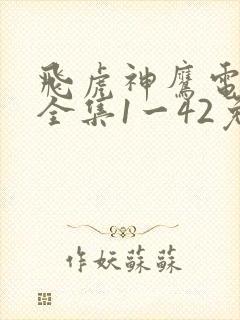 飛虎神鷹電
全集1一42免
作妖蘇蘇